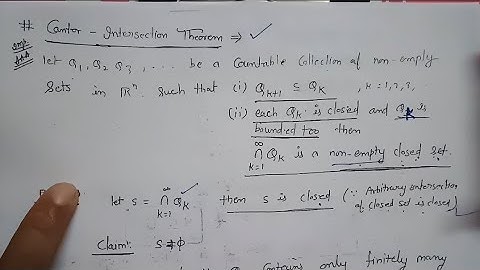 # Cantor - Intersection Theorem ⇒ ✓
let Q₁, Q₂ Q₃, .... be a Countable Collection of non-empty
Sets in ℝⁿ. Such that (i) Q_{k+1} ⊆ Q_k , k = 1,2,3,
(ii) each Q_k is closed and Q_k is
bounded too then
∞
∩ Q_k is a non-empty closed set.
k=1
let s = ∞∩k=1 Q_k then s is closed (∵ Arbitrary intersection
of closed set is closed)
Claim: s ≠ φ
Contains only finitely many